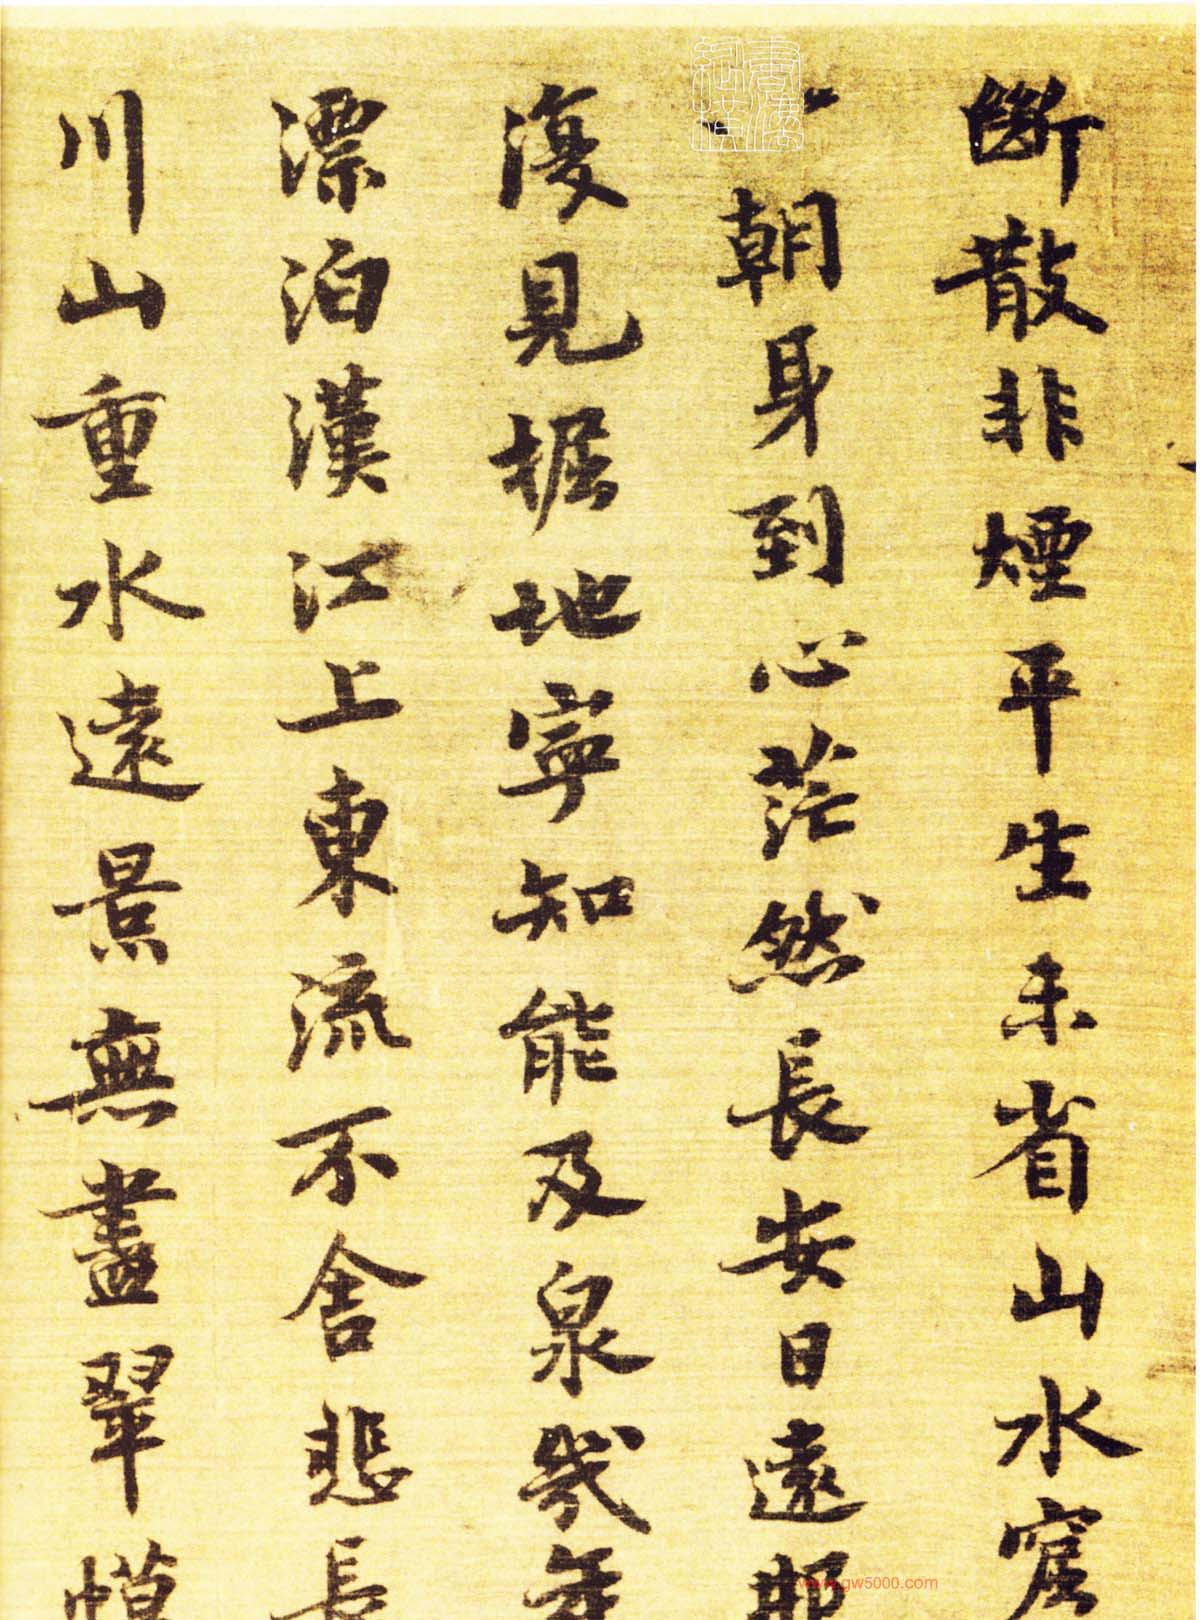 斷散非煙平生未省山水窟
一朝身到心茫然長安日遠那
復見掘地寧知能及泉幾年
漂泊漢江上東流不舍悲長
川山重水遠景無盡翠幙
www.gw5000.com